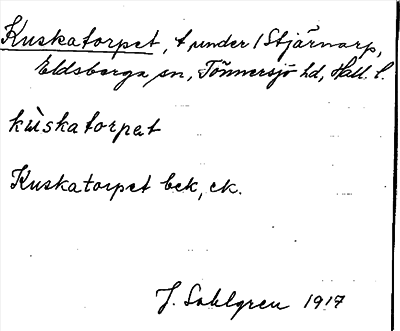 Kuskatorpet, t under 1 Stjärnarp,
Eldsberga sn, Tönnersjö hd, Hall. l.
kùskatorpat
Kuskatorpet bek, ek.
J. Sahlgren 1917